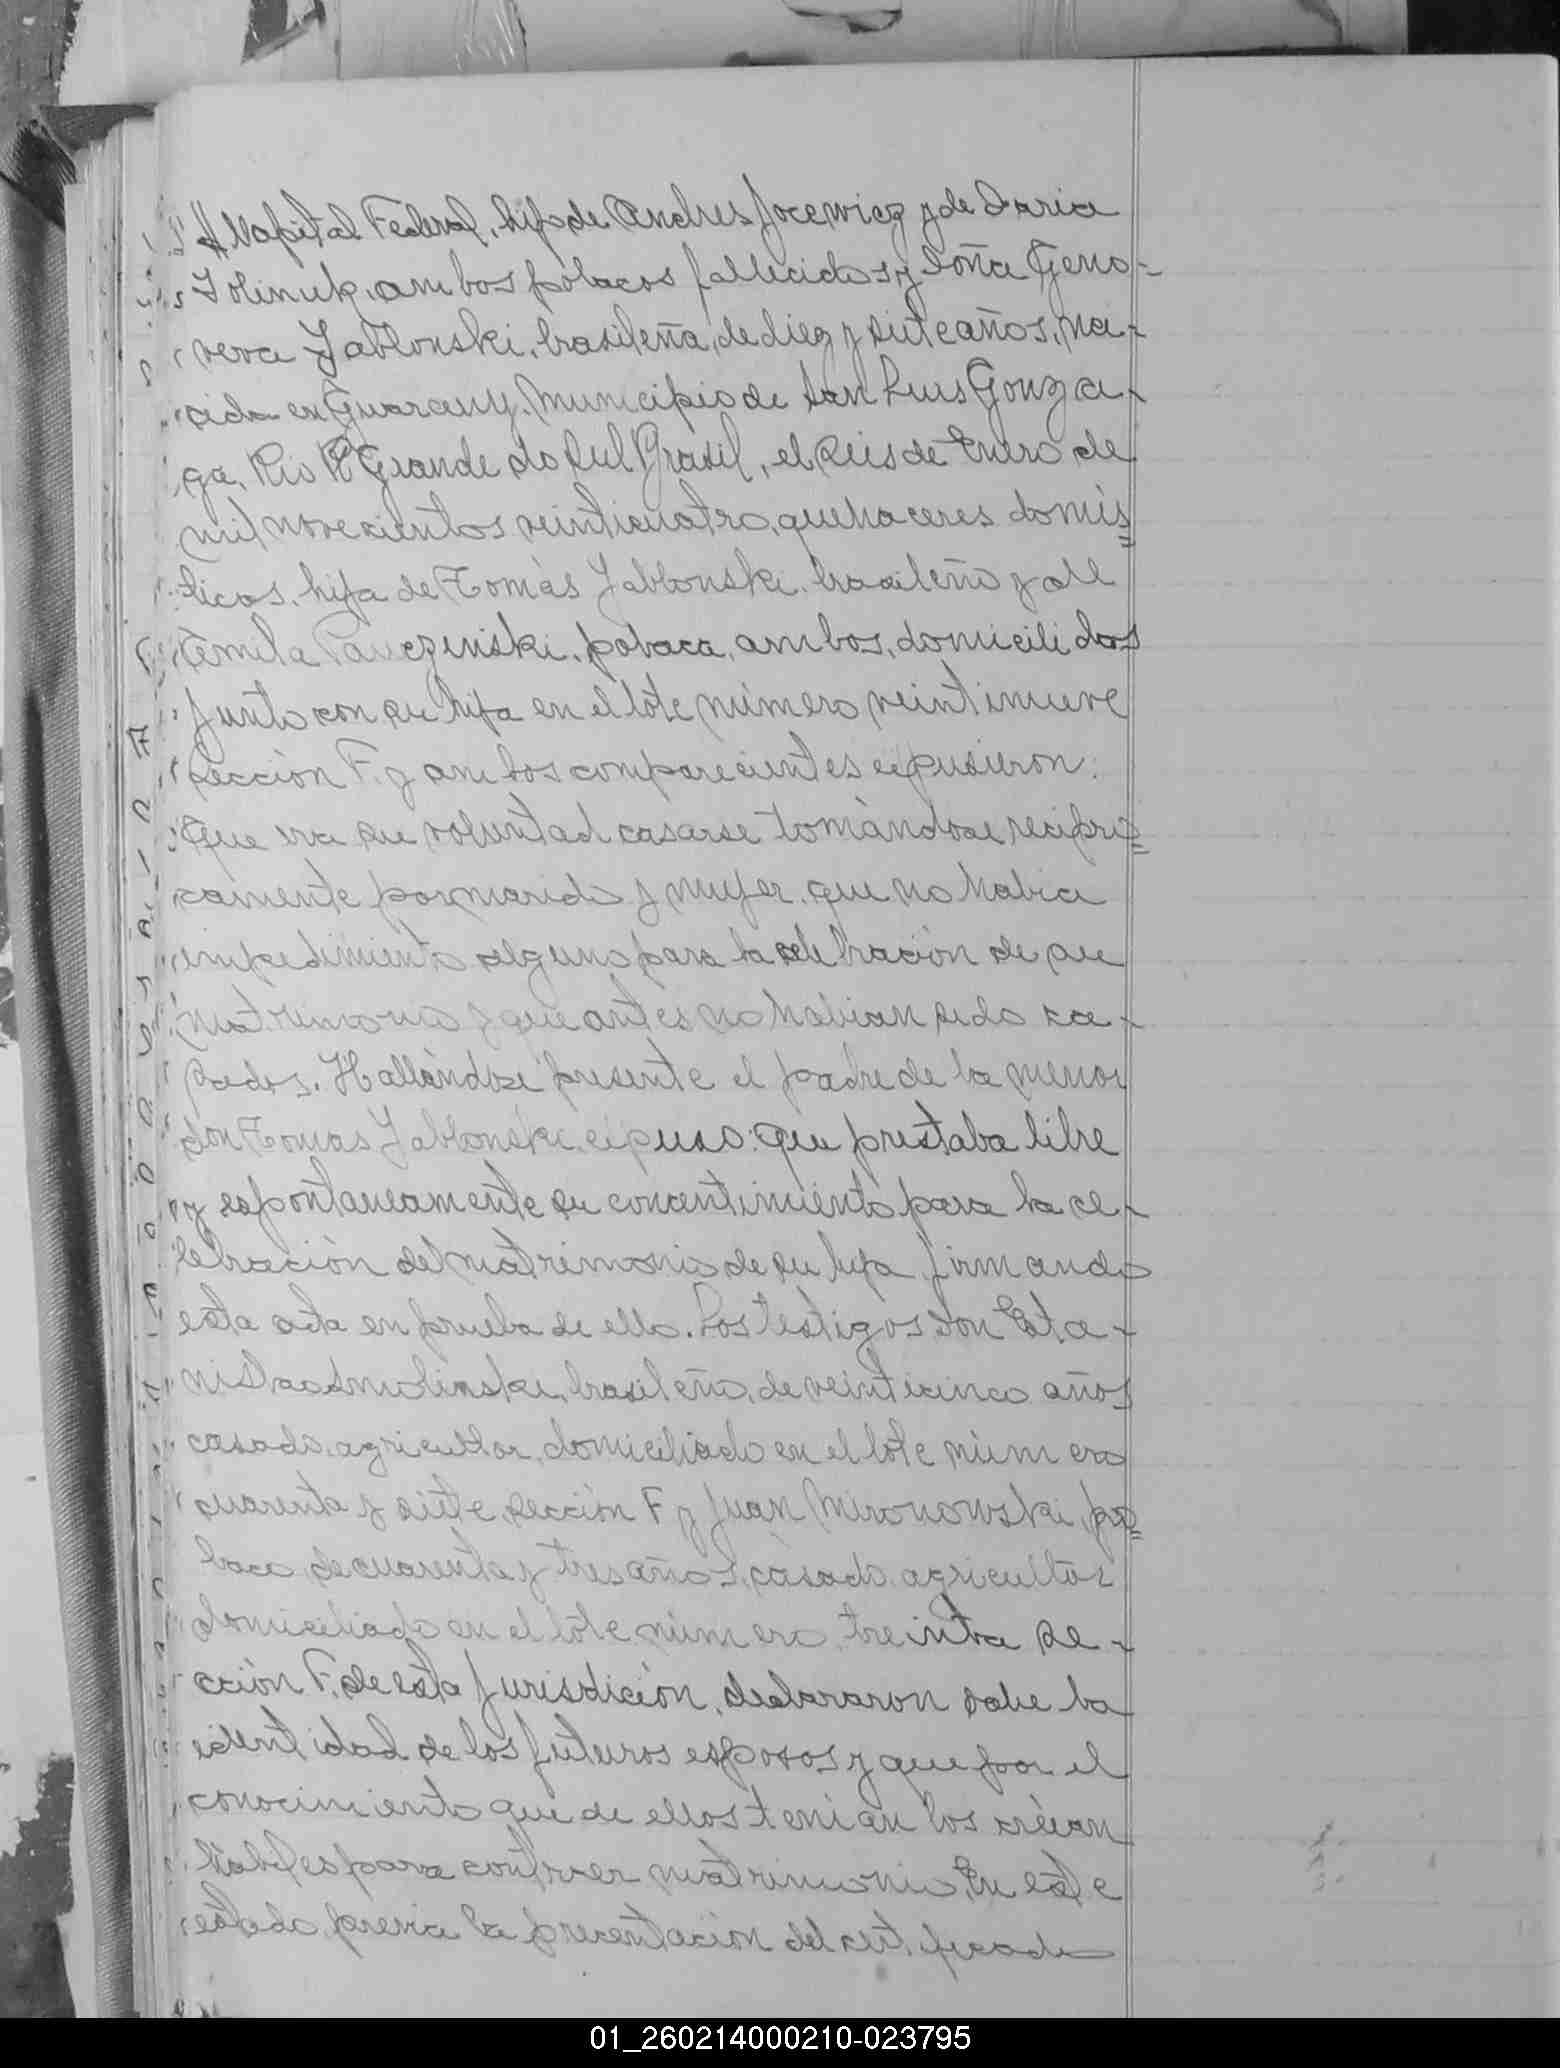 Capital Federal, hijo de Andres Jocewicz y de Daria
Iolinuk, ambos polacos fallecidos y doña Geno-
veva Jablonski, brasileña, de diez y siete años, na-
cida en Guarany, Municipio de San Luis Gonza-
ga, Rio Grande do Sul Brasil, el seis de Enero de
mil novecientos veinticuatro, quehaceres domés
ticos, hija de Tomás Jablonski, brasileño y de
Temila Pauczinski, polaca, ambos, domicilidos
junto con su hija en el lote número veintinueve
Sección F. y ambos comparecientes expusieron:
Que era su voluntad casarse tomàndose recipro
camente por marido y mujer, que no habia
impedimiento alguno para la celebración de su
matrimonio y que antes no habian sido ca-
sados. Hallàndose presente el padre de la menor
don Tomas Jablonski, expuso: que prestaba libre
y espontaneamente su concentimiento para la ce-
lebración del matrimonio de su hija, firmando
esta acta en prueba de ello. Los testigos son Esta-
nislao Smolinski, brasileño, de veinticinco años
casado, agricultor, domiciliado en el lote número
cuarenta y siete, sección F y Juan Mironowski, po
laco, de cuarenta y tres años, casado, agricultor
domiciliado en el lote número treinta se-
cción F. de esta Jurisdición, declararon sobre la
identidad de los futuros esposos y que por el
conocimiento que de ellos tenian los creian
habiles para contraer matrimonio. En este
estado, previa la precentación del certificado
01_260214000210-023795